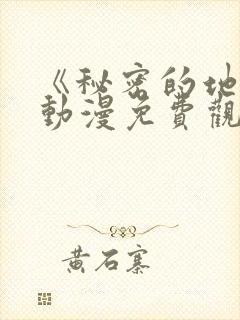 《秘密的地
動漫免費觀
黃石寨